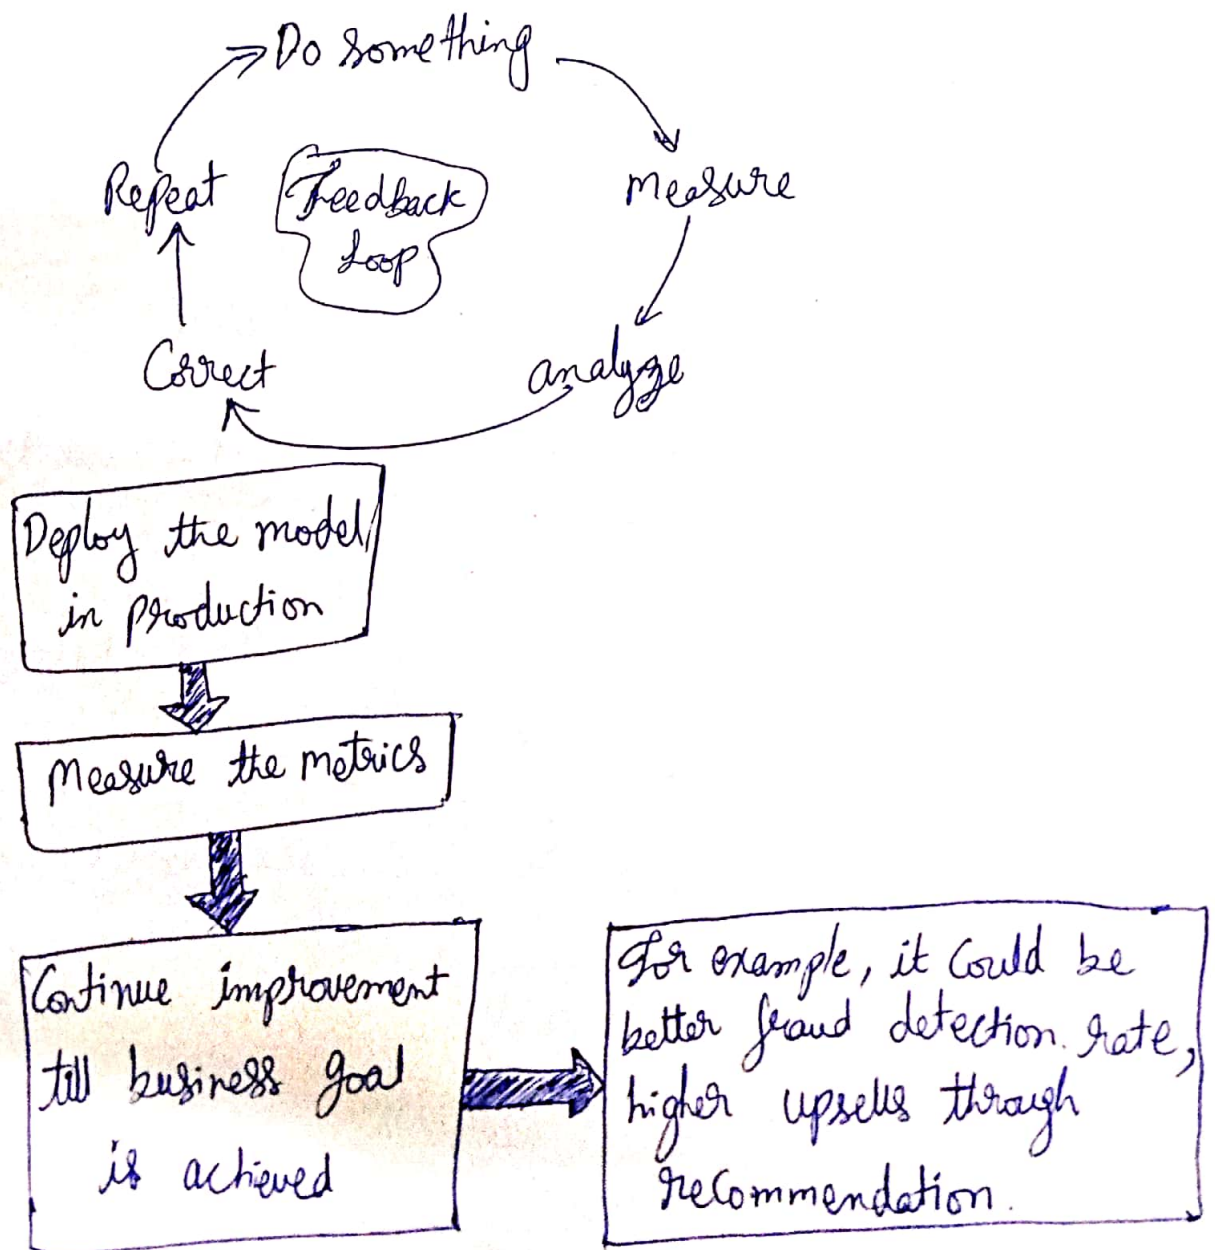 Do something
Repeat
Feedback
Loop
Measure
Correct
analyze
Deploy the model
in production
Measure the metrics
Continue improvement
till business goal
is achieved
For example, it could be
better fraud detection rate,
higher upsells through
recommendation.